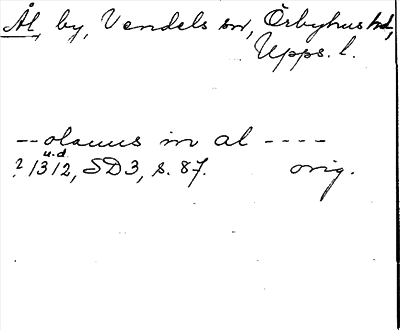 Ål, by, Vendels sn, Örbyhus hd,
Upps. l.
-- olauus in al ----
u.d.
? 1312, SD3, s. 87. orig.